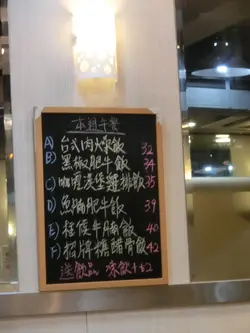 本週午餐
A) 台式肉燥飯 32
B) 黑椒肥牛飯 34
C) 咖喱漢堡雞排飯 35
D) 魚腩肥牛飯 39
E) 柱侯牛腩飯 40
F) 招牌橋醋骨飯 42
送飲品 凍飲+$2